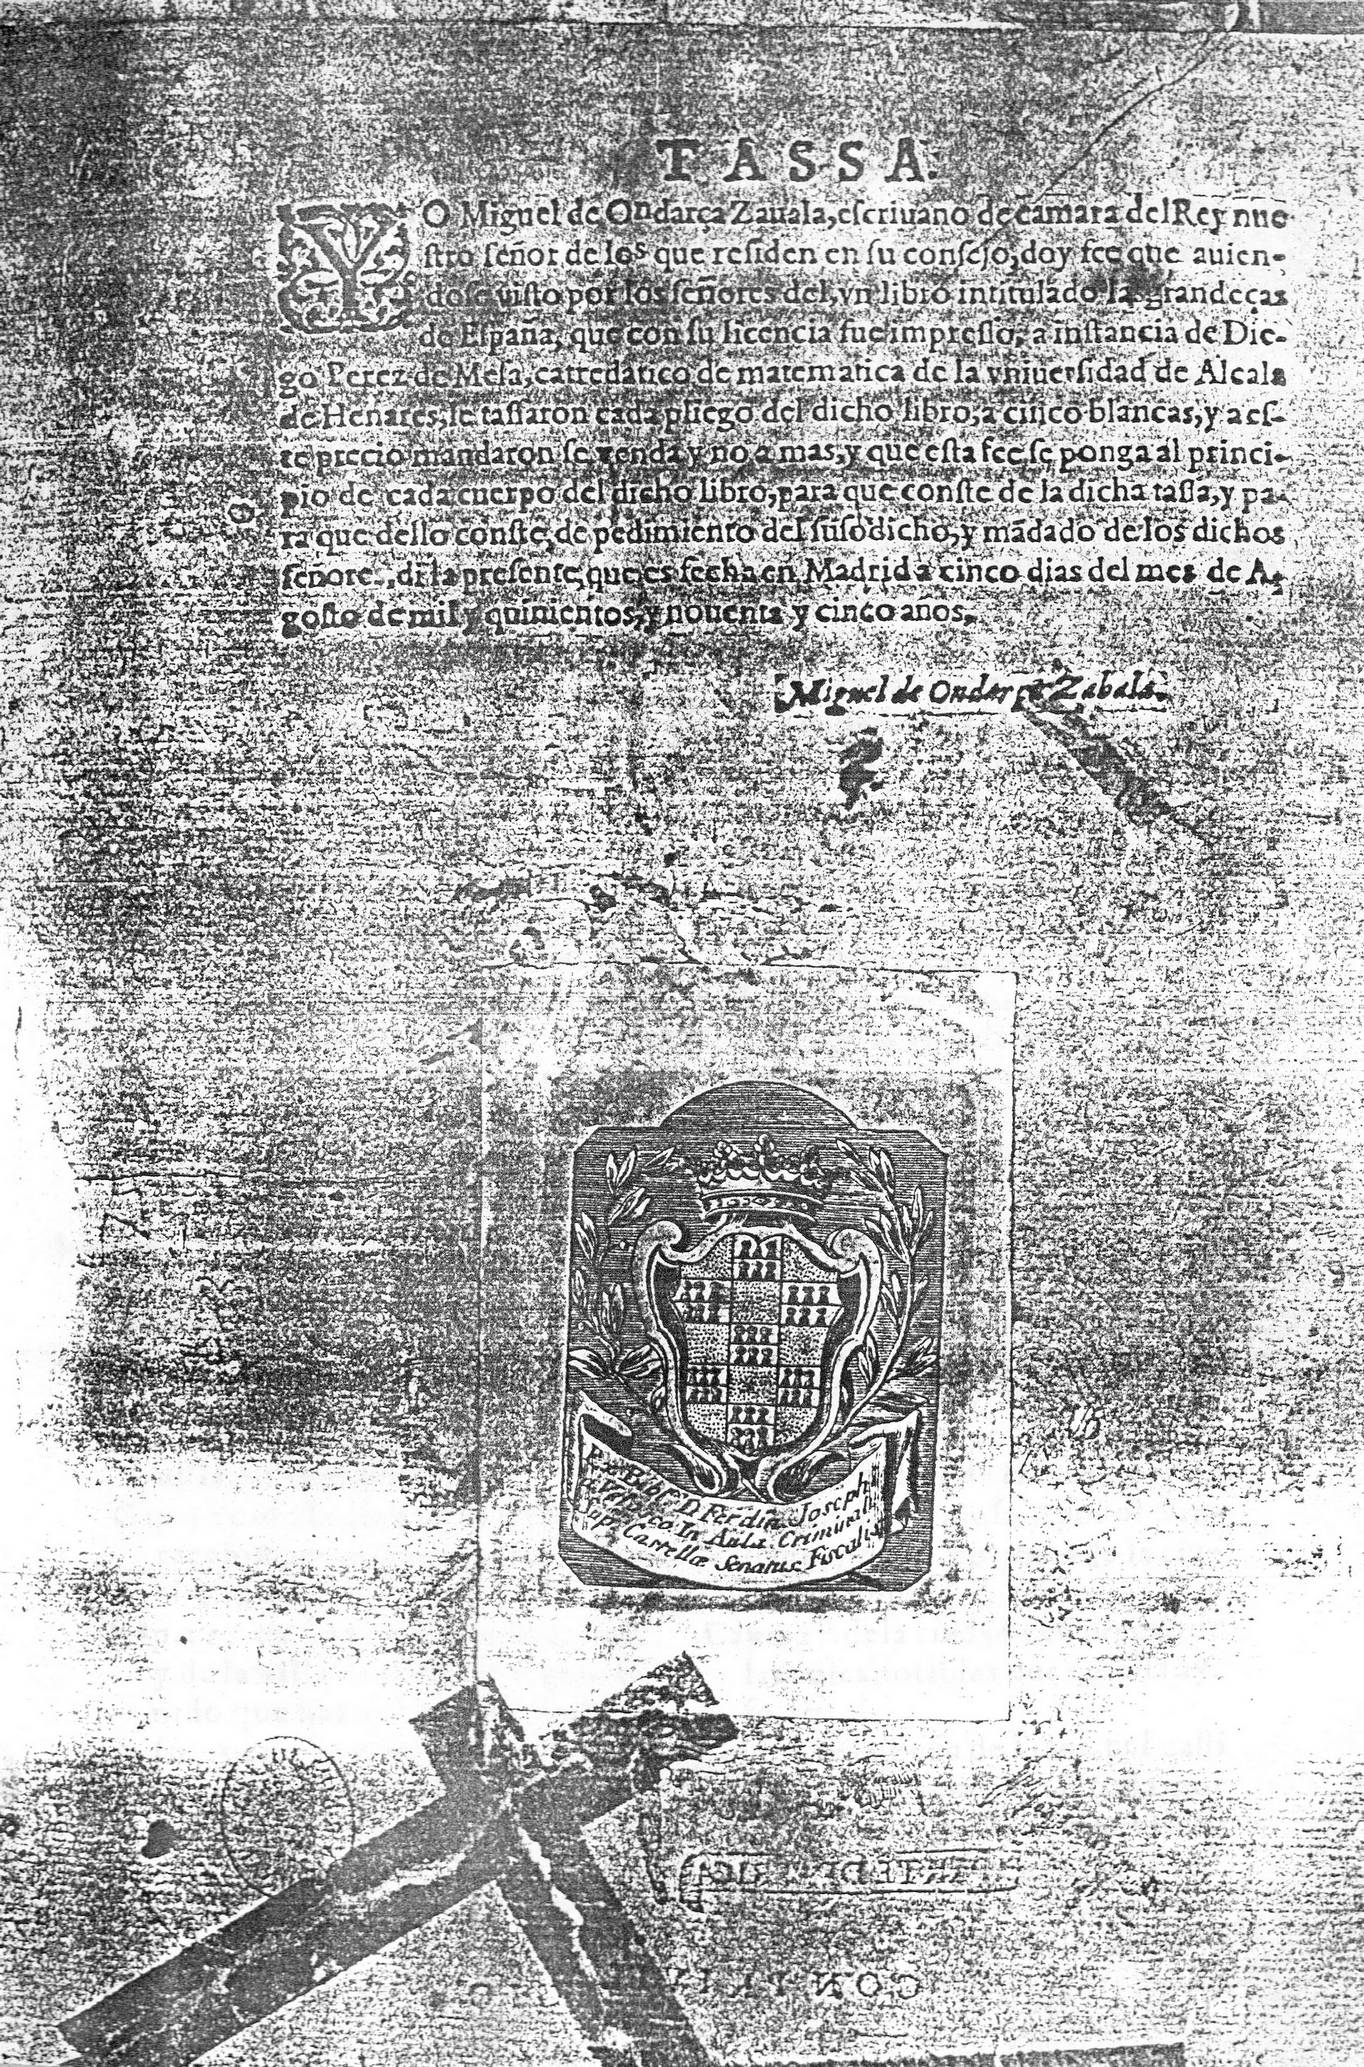 TASSA.
YO Miguel de Ondarça Zauala, escriuano de camara del Rey nue
stro señor de los que residen en su consejo, doy fee que auien-
dose visto por los señores del, vn libro intitulado las grandeças
de España, que con su licencia fue impresso, a instancia de Die-
go Perez de Mesa, catredatico de matematica de la vniuersidad de Alcala
de Henares, se tassaron cada pliego del dicho libro, a cinco blancas, y a es-
te precio mandaron se venda y no a mas, y que esta fee se ponga al princi-
pio de cada cuerpo del dicho libro, para que conste de la dicha tassa, y pa-
ra que dello conste, de pedimiento del susodicho, y mãdado de los dichos
señore., di la presente, que es fecha en Madrid a cinco dias del mes de A-
gosto de mil y quinientos, y nouenta y cinco años.
Miguel de Ondarça Zabala.
Ex Bibl. D. Ferdin. Joseph
Velasco. In Aula Criminali
Supr. Castellæ Senatus Fiscalis